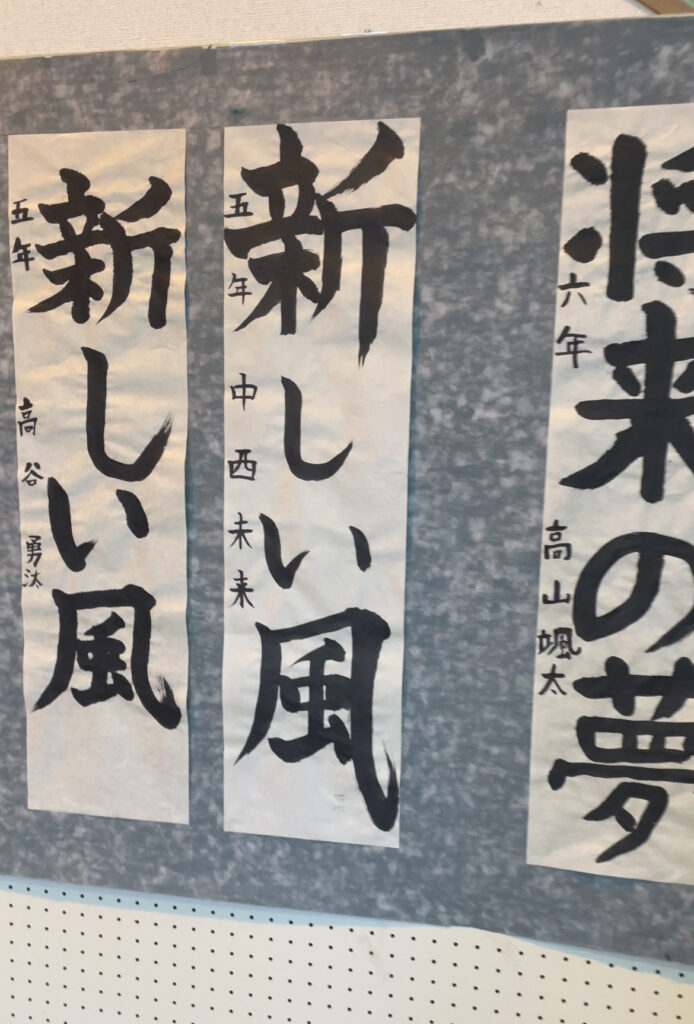 新しい風
五年
高谷 勇汰
新しい風
五年
中西未来
将来の夢
六年
高山颯太